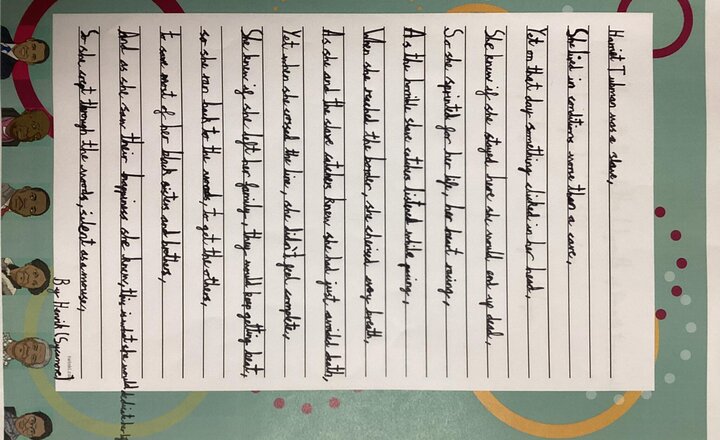 Harriet Tubman was a slave,
She lived in conditions worse than a cave,
Yet on that day something clicked in her head,
She knew if she stayed here she would end up dead,
So she sprinted for her life, her heart racing,
As the horrible slave catcher listened while pacing,
When she reached the border, she cherised every breath,
As she and the slave catcher knew she had just avoided death,
Yet when she crossed the line, she didn't feel complete,
She knew if she left her family, they would keep getting beat,
so she ran back to the woods, to get the others,
to save most of her black sisters and brothers,
And as she saw their happiness she knew, this is what she would dedicate her
So she crept through the woods, silent as a mouse,
By Henrik (Sycamore)